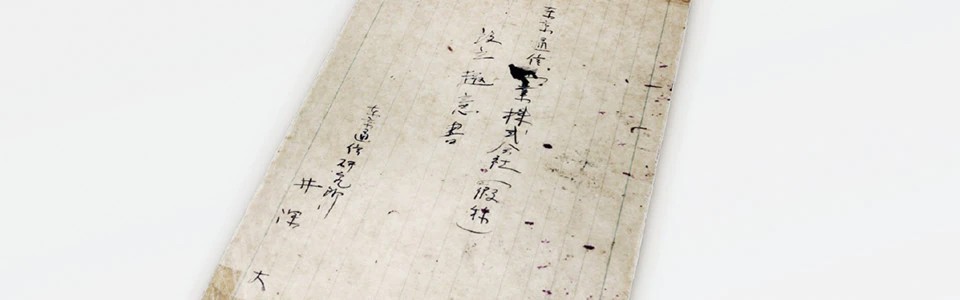 東京通信業株式会社(假称)
設立趣意書
東京通信研究所
井深 大